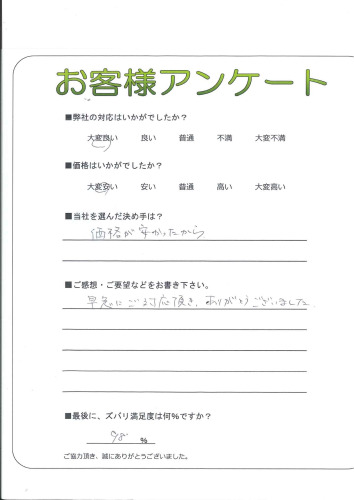 お客様アンケート
■弊社の対応はいかがでしたか？
大変良い 良い 普通 不満 大変不満
■価格はいかがでしたか？
大変安い 安い 普通 高い 大変高い
■当社を選んだ決め手は？
価格が安かったから
■ご感想・ご要望などをお書き下さい。
早急にご対応頂き、ありがとうございました。
■最後に、ズバリ満足度は何%ですか？
98 %
ご協力頂き、誠にありがとうございました。